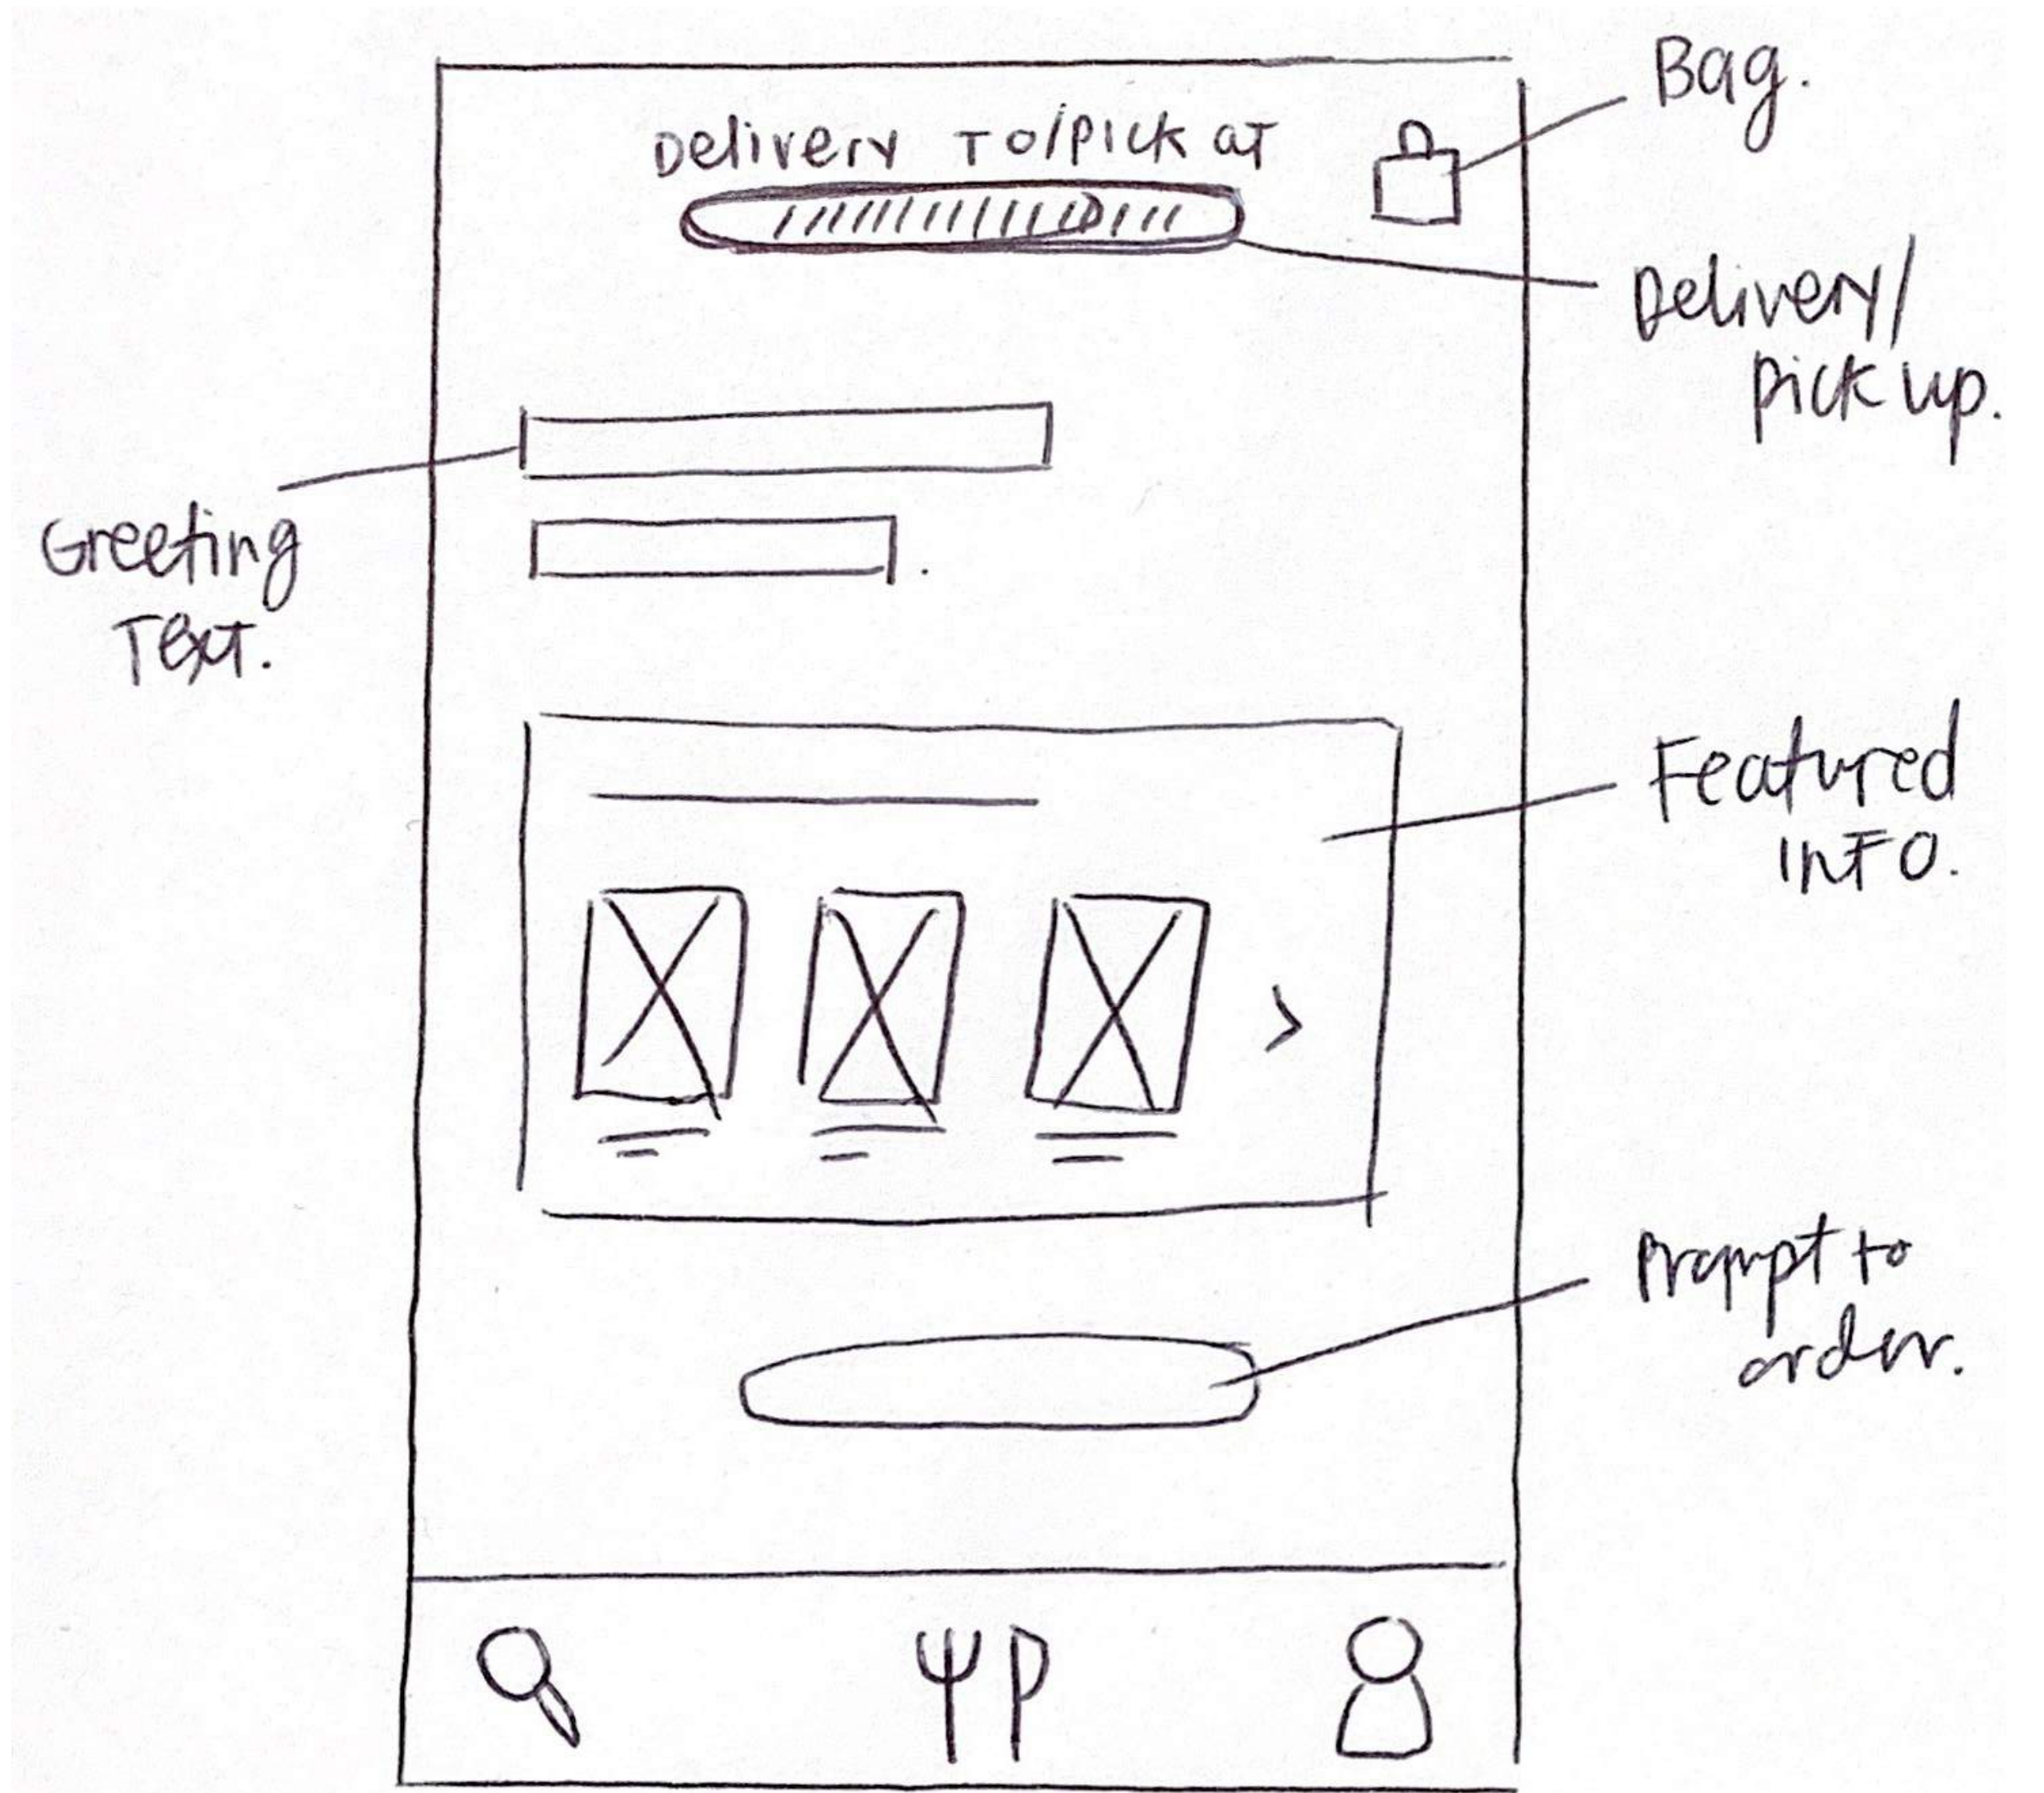 Bag.
Delivery To/Pick at
Delivery/
Pick up.
Greeting
Text.
Featured
info.
Prompt to
order.